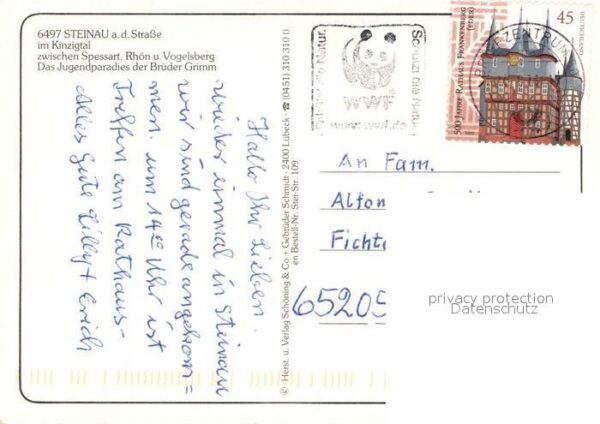 6497 STEINAU a. d. Straße
im Kinzigtal
zwischen Spessart, Rhön u. Vogelsberg
Das Jugendparadies der Brüder Grimm
Hallo Ihr Lieben.
wieder einmal in Steinau
wir sind gerade angekom=
men. um 14 00 Uhr ist
Treffen am Rathaus-
Alles Gute Lilly + Erich
© Herst. u. Verlag Schöning & Co + Gebrüder Schmidt · 2400 Lübeck · ☎ (0451) 310 310 0
en Bestell-Nr. Stei-Str. 109
Schützt die Natur
WWF
www.wwf.de
500 JAHRE RATHAUS FRANKENBERG
(EDER)
45
DEUTSCHLAND
BRIEFZENTRUM
An Fam.
Alfon
Fichte
65205
privacy protection
Datenschutz